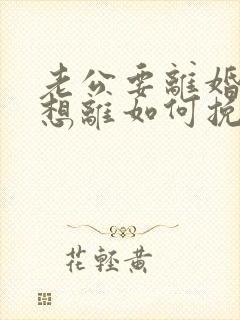 老公要離婚
想離如何挽
花輕黄